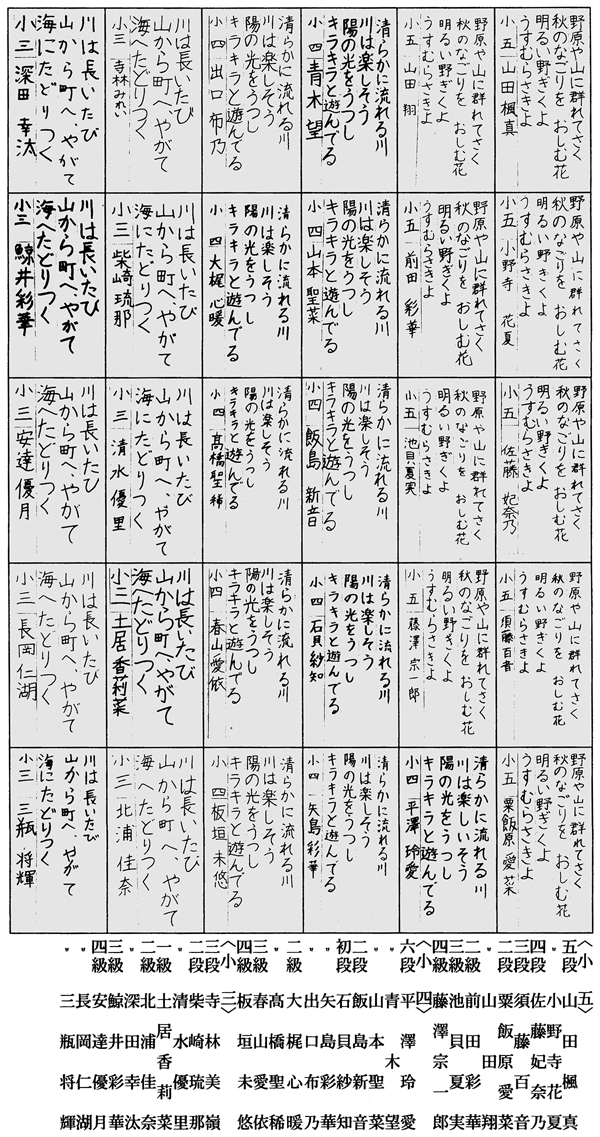 野原や山に群れてさく
秋のなごりを おしむ花
明るい野ぎくよ
うすむらさきよ
小五 山田楓真
野原や山に群れてさく
秋のなごりを おしむ花
明るい野ぎくよ
うすむらさきよ
小五 小野寺 花夏
野原や山に群れてさく
秋のなごりを おしむ花
明るい野ぎくよ
うすむらさきよ
小五 佐藤 妃奈乃
野原や山に群れてさく
秋のなごりを おしむ花
明るい野ぎくよ
うすむらさきよ
小五 須藤百音
野原や山に群れてさく
秋のなごりを おしむ花
明るい野ぎくよ
うすむらさきよ
小五 粟飯原 愛菜
野原や山に群れてさく
秋のなごりを おしむ花
明るい野ぎくよ
うすむらさきよ
小五 山田 翔
野原や山に群れてさく
秋のなごりを おしむ花
明るい野ぎくよ
うすむらさきよ
小五 前田 彩華
野原や山に群れてさく
秋のなごりを おしむ花
明るい野ぎくよ
うすむらさきよ
小五 池貝夏実
野原や山に群れてさく
秋のなごりを おしむ花
明るい野ぎくよ
うすむらさきよ
小五 藤澤宗一郎
清らかに流れる川
川は楽しいそう
陽の光をうつし
キラキラと遊んでる
小四 平澤玲愛
清らかに流れる川
川は楽しそう
陽の光をうつし
キラキラと遊んでる
小四 青木望
清らかに流れる川
川は楽しそう
陽の光をうつし
キラキラと遊んでる
小四 山本聖菜
清らかに流れる川
川は楽しそう
陽の光をうつし
キラキラと遊んでる
小四 飯島 新音
清らかに流れる川
川は楽しそう
陽の光をうつし
キラキラと遊んでる
小四 石貝紗知
清らかに流れる川
川は楽しそう
陽の光をうつし
キラキラと遊んでる
小四 矢島彩華
清らかに流れる川
川は楽しそう
陽の光をうつし
キラキラと遊んでる
小四 出口 布乃
清らかに流れる川
川は楽しそう
陽の光をうつし
キラキラと遊んでる
小四 大梶 心暖
清らかに流れる川
川は楽しそう
陽の光をうつし
キラキラと遊んでる
小四 髙橋聖稀
清らかに流れる川
川は楽しそう
陽の光をうつし
キラキラと遊んでる
小四 春山愛依
清らかに流れる川
川は楽しそう
陽の光をうつし
キラキラと遊んでる
小四 板垣 未悠
川は長いたび
山から町へ、やがて
海へたどりつく
小三 寺林みれい
川は長いたび
山から町へ、やがて
海へたどりつく
小三 柴崎琉那
川は長いたび
山から町へ、やがて
海にたどりつく
小三 清水優里
川は長いたび
山から町へやがて
海へたどりつく
小三 土居香莉菜
川は長いたび
山から町へ、やがて
海へたどりつく
小三 北浦佳奈
川は長いたび
山から町へ、やがて
海にたどりつく
小三 深田幸汰
川は長いたび
山から町へ、やがて
海へたどりつく
小三 鯨井彩華
川は長いたび
山から町へ、やがて
海へたどりつく
小三 安達優月
川は長いたび
山から町へ、やがて
海へたどりつく
小三 長岡仁湖
川は長いたび
山から町へ、やがて
海にたどりつく
小三 三瓶将輝
〈小五〉
五段 山田楓真
〃 小野寺花夏
四段 佐藤妃奈乃
三段 須藤百音
二段 粟飯原愛菜
〃 山田翔
二級 前田彩華
三級 池貝夏実
四級 藤澤宗一郎
〈小四〉
六段 平澤玲愛
〃 青木望
〃 山本聖菜
二段 飯島新音
初段 石貝紗知
〃 矢島彩華
〃 出口布乃
二級 大梶心暖
〃 髙橋聖稀
三級 春山愛依
四級 板垣未悠
〈小三〉
三段 寺林美嶺
二段 柴崎琉那
〃 清水優里
一級 土居香莉菜
二級 北浦佳奈
〃 深田幸汰
三級 鯨井彩華
四級 安達優月
〃 長岡仁湖
〃 三瓶将輝